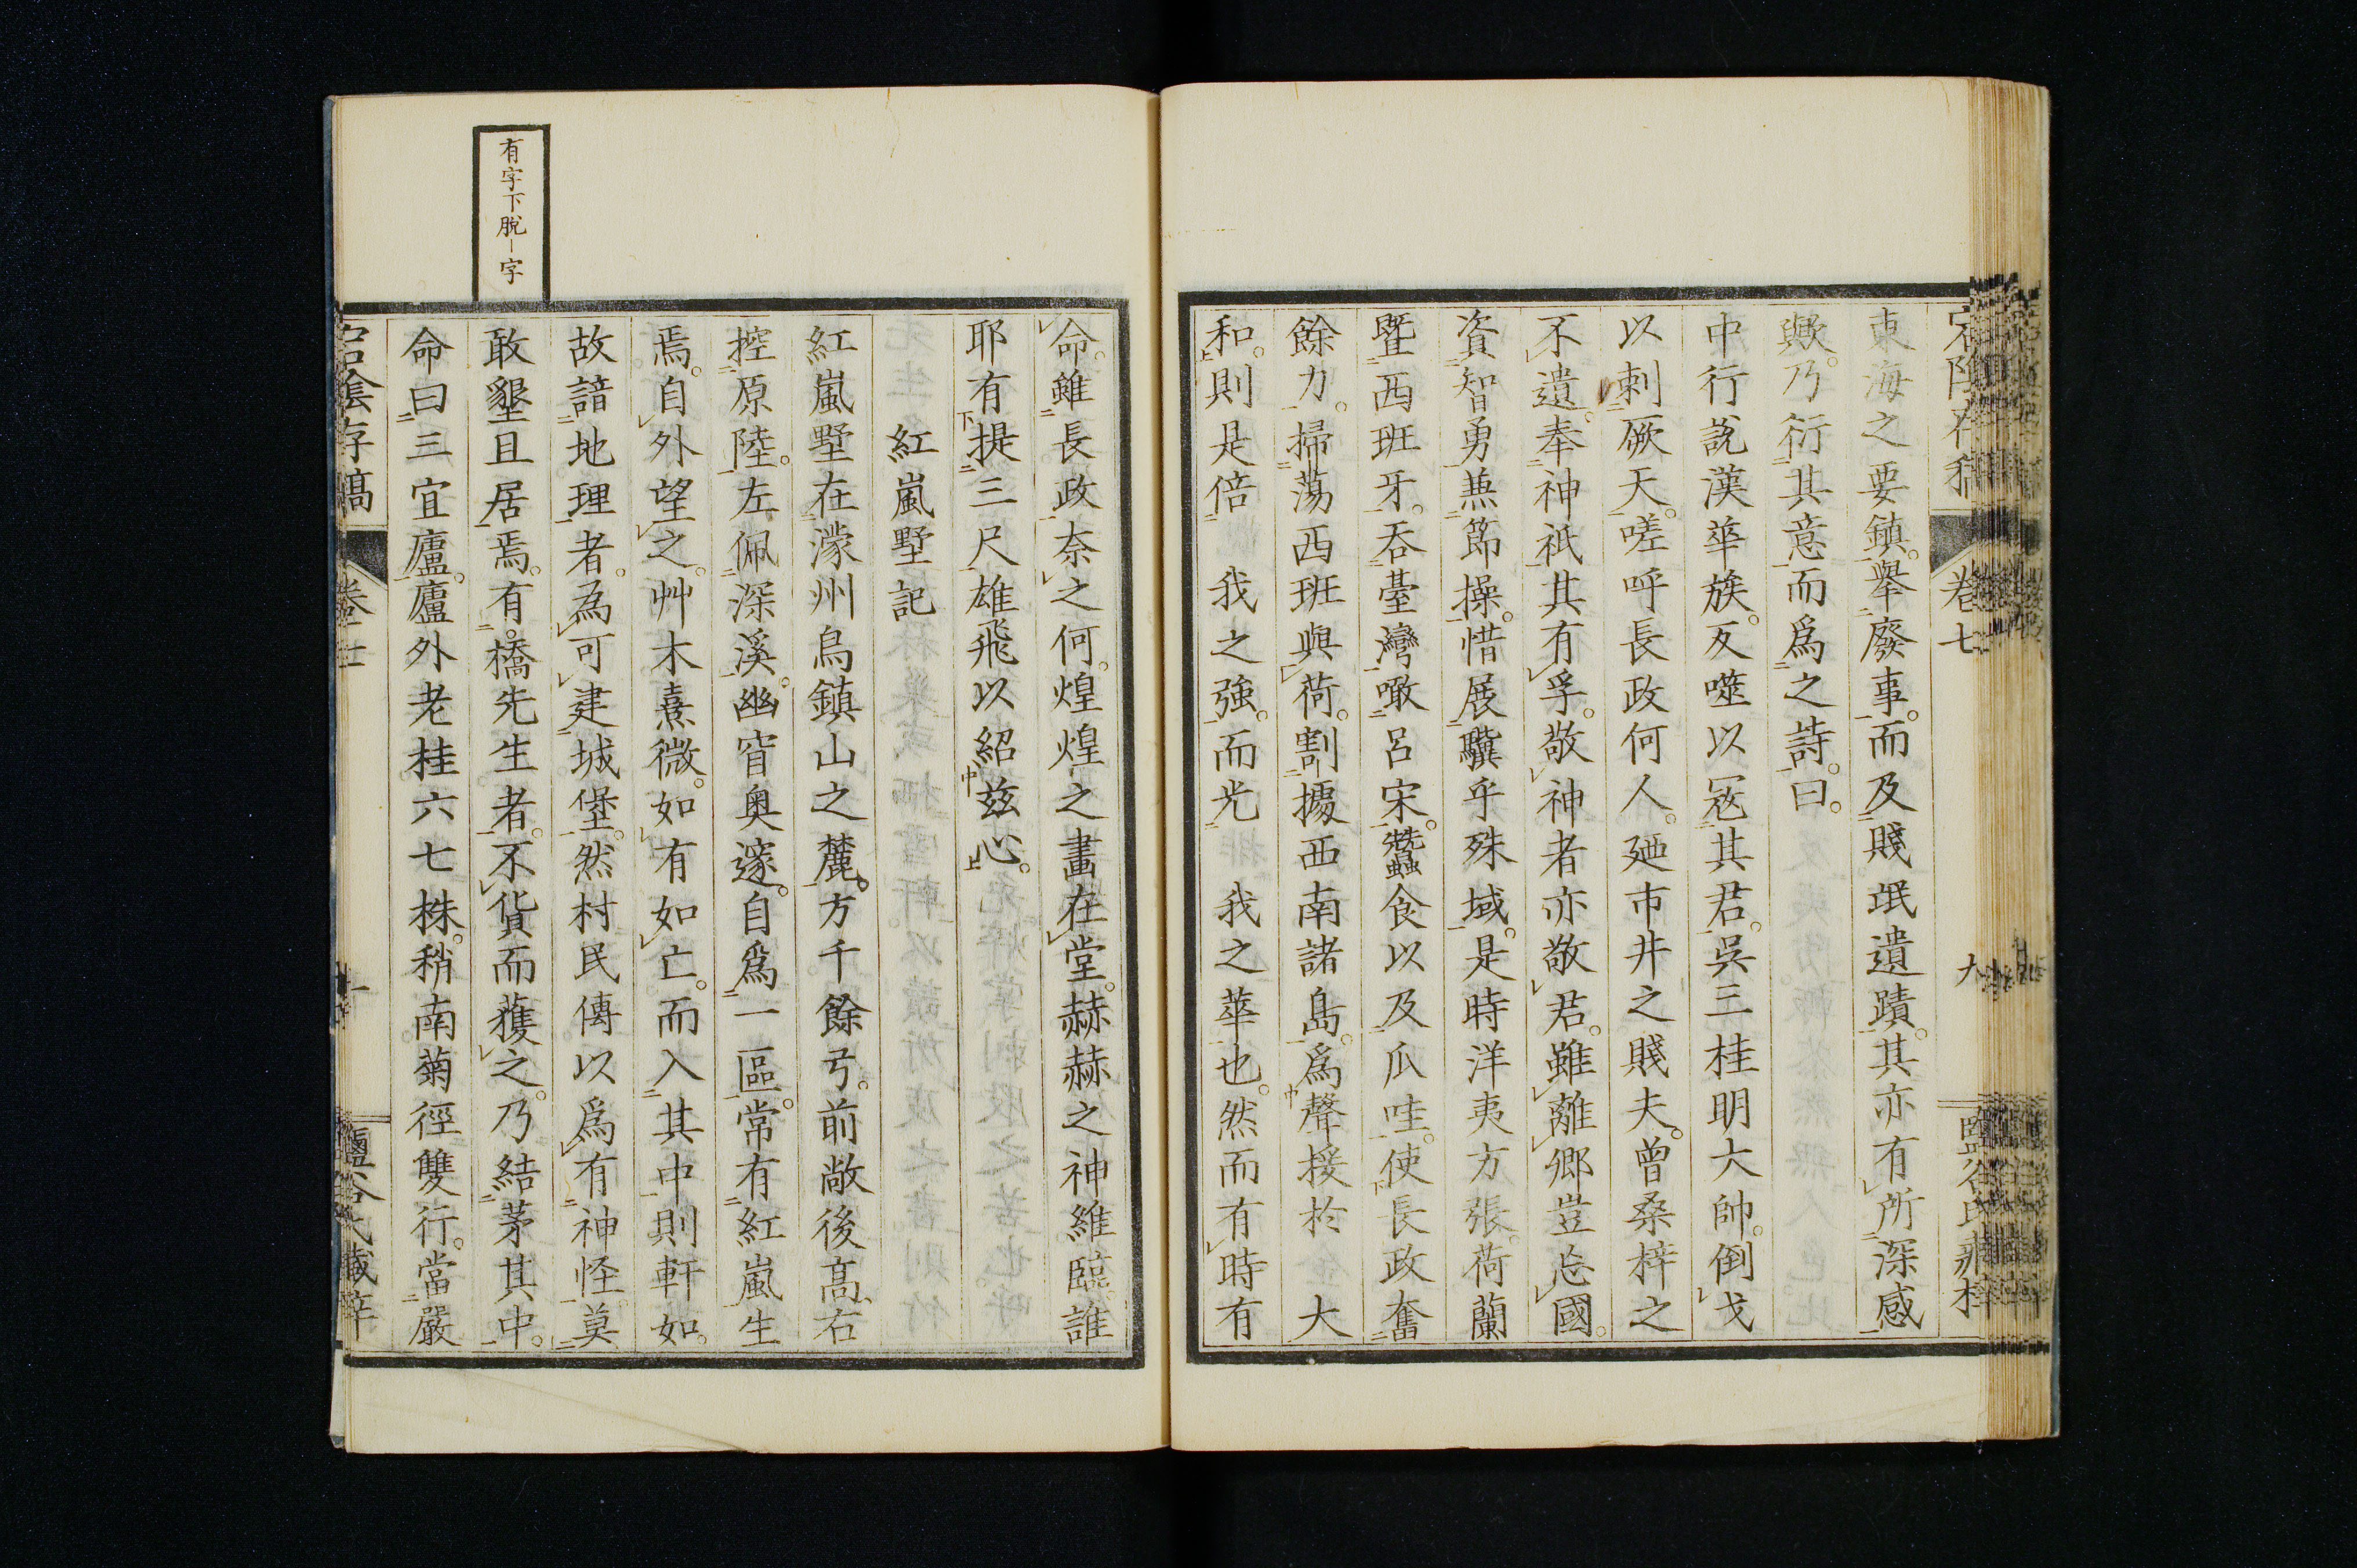 東海之要鎮。舉廢事。而及賤氓遺蹟。其亦有所深感
歟。乃衍其意而爲之詩。曰。
中行說漢華族。反噬以冦其君。吳三桂明大帥。倒戈
以刺厥天。嗟呼長政何人。廼市井之賤夫。曾桑梓之
不遺。奉神祇其有孚。敬神者亦敬君。雖離鄉豈忘國。
資智勇兼節操。惜展驥乎殊域。是時洋夷方張。荷蘭
曁西班牙。吞臺灣噉呂宋。蠶食以及瓜哇。使長政奮
餘力。掃蕩西班與荷。割據西南諸島。爲聲接於 大
和。則是倍 我之強。而光 我之華也。然而有時有
命。雖長政奈之何。煌煌之畫在堂。赫赫之神維臨。誰
耶有提三尺。雄飛以紹兹心。
紅嵐墅記
紅嵐墅在濛州烏鎮山之麓。方千餘弓。前敞後高、右
控原陸。左佩深溪。幽窅奥邃。自爲一區。常有紅嵐生
焉。自外望之。艸木熹微。如有如亡。而入其中則軒如。
故諳地理者。為可建城堡。然村民傳以爲有神怪。莫
敢墾且居焉。有。橋先生者。不貨而獲之。乃結茅其中。
命曰三宜廬。廬外老桂六七株。稍南菊徑雙行。當嚴
有字下脫一字
卷七
宕陰存稿